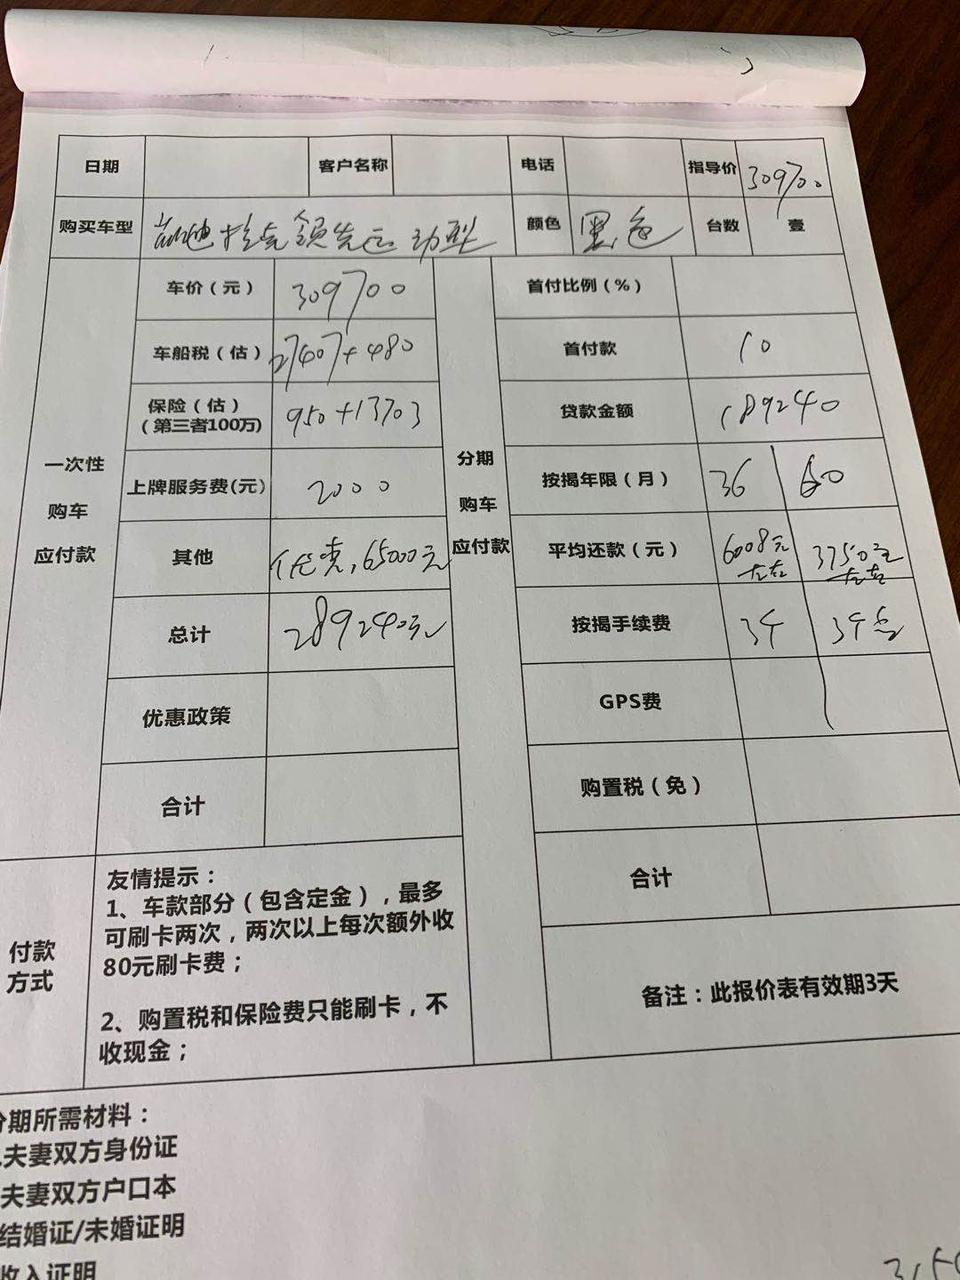 日期 客户名称 电话 指导价 309700
购买车型 领先运动型 颜色 黑色 台数 壹
一次性
购车
应付款
车价（元） 309700
车船税（估） 27407+480
保险（估）
（第三者100万） 950+13703
上牌服务费(元) 2000
其他 优惠,65000元
总计 289240元
优惠政策
合计
分期
购车
应付款
首付比例（%）
首付款 10
贷款金额 189240
按揭年限（月） 36 60
平均还款（元） 6008元左右 3750元左右
按揭手续费 3千 3千
GPS费
购置税（免）
合计
付款
方式
友情提示：
1、车款部分（包含定金），最多
可刷卡两次，两次以上每次额外收
80元刷卡费；
2、购置税和保险费只能刷卡，不
收现金；
备注：此报价表有效期3天
分期所需材料：
夫妻双方身份证
夫妻双方户口本
结婚证/未婚证明
收入证明